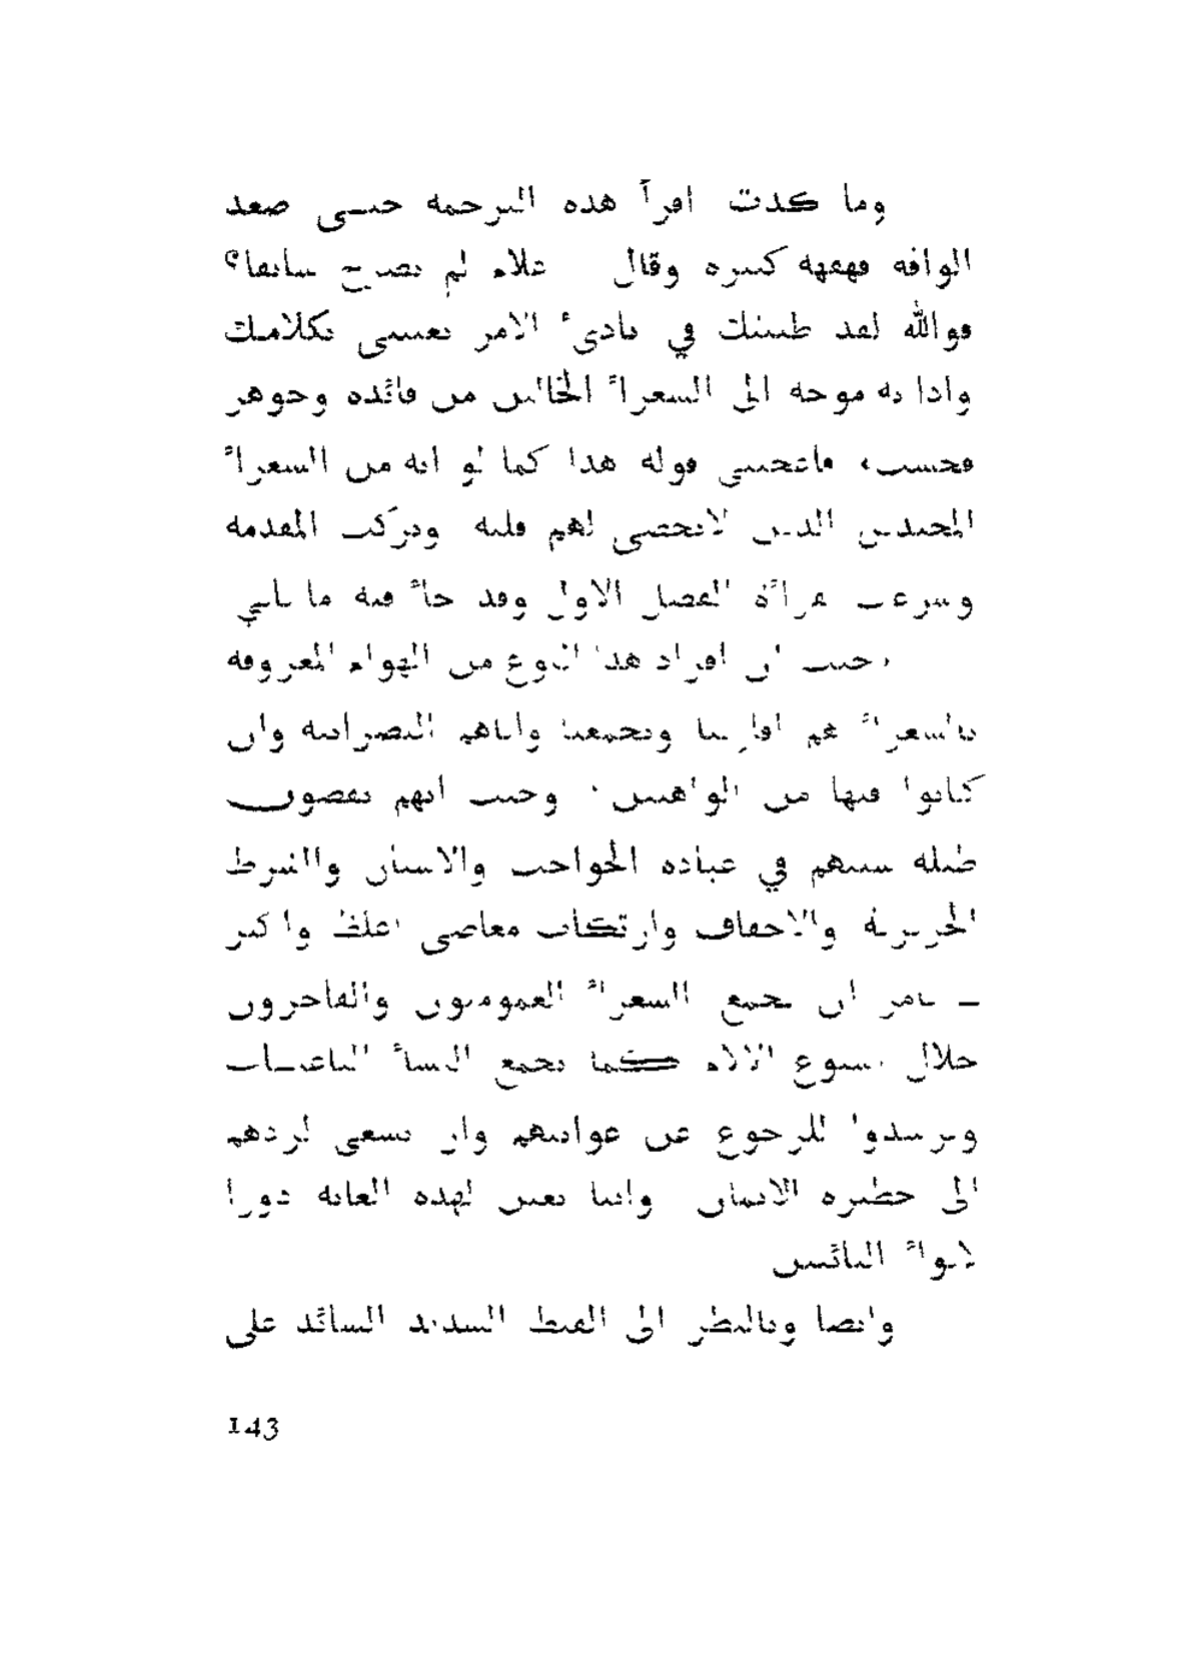 وما كدت اقرأ هذه الترجمة حتى صعد
الوافه قهقهة كبيرة وقال علام لم تصرح سابقا؟
فوالله لقد ظننتك في بادئ الامر تعنيني بكلامك
واذا به موجه الى الشعراء الخالين من فائدة وجوهر
فحسب، فاتحسبني قوله هذا كما لو انه من الشعراء
المجيدين الذين لاتحصى لهم قلبه وتركت المقدمة
وشرعت بقراءة الفصل الاول وقد جاء فيه ما يلي
، حيث ان افراد هذا النوع من الهوام المعروفة
بالشعراء هم اقاربنا وتجمعنا واياهم النصرانية وان
كانوا فيها من الواهنين. وحيث انهم يقضون
طيلة سنيهم في عبادة الحواجب والاسنان والشرط
الحريرية والاخفاف وارتكاب معاصي اغلظ واكبر
ـ نامر ان يجمع الشعراء العموميون والفاجرون
خلال اسبوع الآلام كما تجمع النساء الباغيات
ويرشدوا للرجوع عن غوايتهم وان نسعى لردهم
الى حظيرة الايمان واننا نعين لهذه الغاية دورا
لايواء البائسين
وايضا وبالنظر الى القيظ الشديد السائد على
143